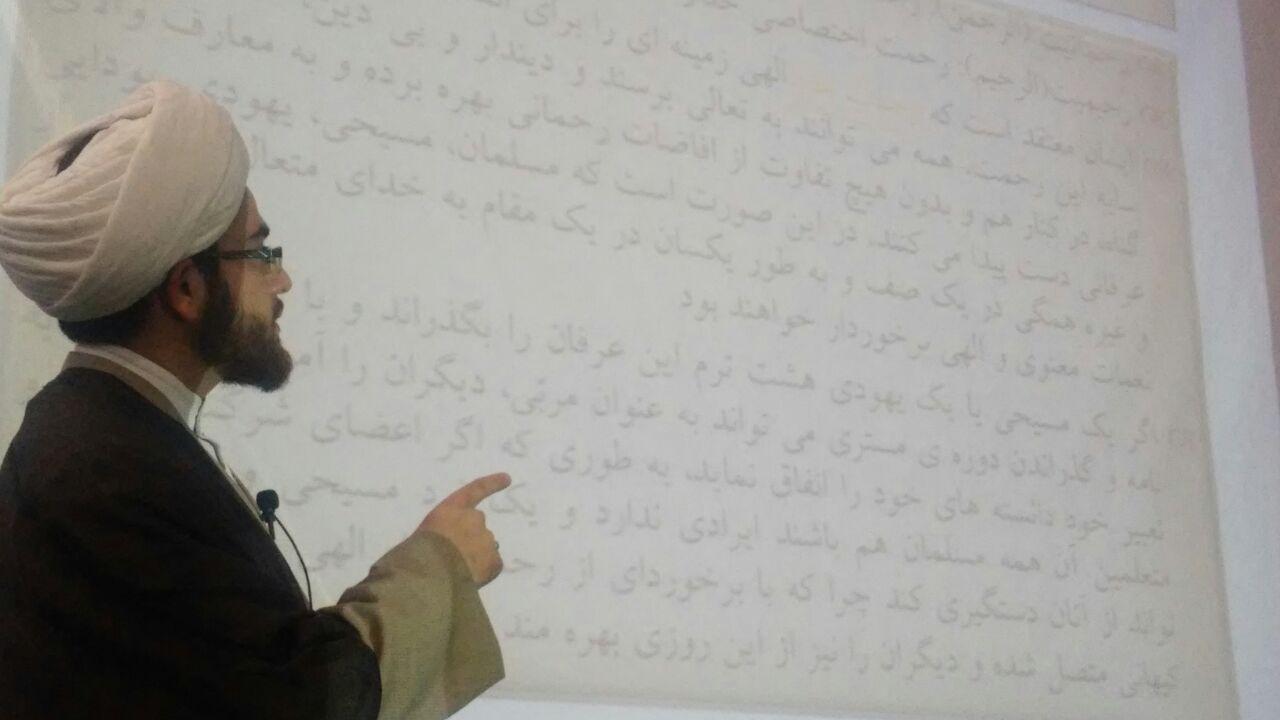 رحمانیت (الرحمن)
رحیمیت(الرحیم)، رحمت اختصاصی
ایشان معتقد است که الهی زمینه ای را برای
سایه این رحمت، همه می توانند به تعالی برسند و دیندار و بی دین،
گناه، در کنار هم و بدون هیچ تفاوت از افاضات رحمانی بهره برده و به معارف و
عرفانی دست پیدا می کنند. در این صورت است که مسلمان، مسیحی، یهودی، بودایی
و غیره همگی در یک صف و به طور یکسان در یک مقام به خدای متعال
نعمات معنوی و الهی برخوردار خواهند بود
اگر یک مسیحی یا یک یهودی هشت ترم این عرفان را بگذراند و با
نامه و گذراندن دوره ی مستری می تواند به عنوان مربّی، دیگران را
تعبیر خود دانسته های خود را انفاق نماید. به طوری که اگر اعضای
متعلمین آن همه مسلمان هم باشند ایرادی ندارد و یک مسیحی
تواند از آنان دستگیری کند چرا که با برخوردای از الهی
کیهانی متصل شده و دیگران را نیز از این روزی بهره مند